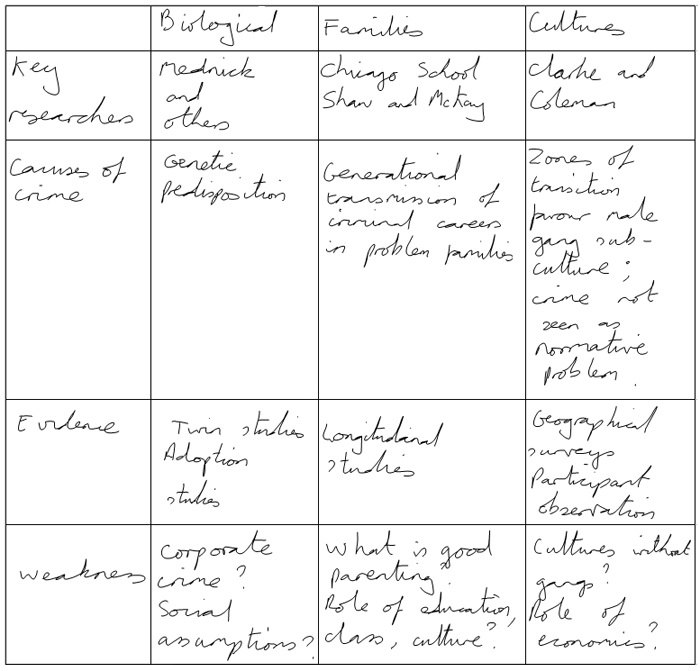 Biological
Families
Cultures
Key
researchers
Mednick
and
others
Chicago School
Shaw and McKay
Clarke and
Coleman
Causes of
crime
Genetic
predisposition
Generational
transmission of
criminal careers
in problem families
Zones of
transition
favour male
gang sub-
culture;
crime not
seen as
normative
problem.
Evidence
Twin studies
Adoption
studies
Longitudinal
studies
Geographical
surveys
Participant
observation
Weakness
Corporate
crime?
Social
assumptions?
What is good
parenting?
Role of education,
class, culture?
Cultures without
gangs?
Role of
economics?